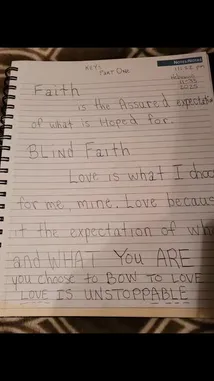 KEYS
PART ONE
Faith
is the Assured
of what is Hoped for.
BLIND Faith
Love is what I
for me, mine. Love
it the expectation of
and WHAT YOU ARE
you choose to BOW TO LOVE
LOVE IS UNSTOPPABLE